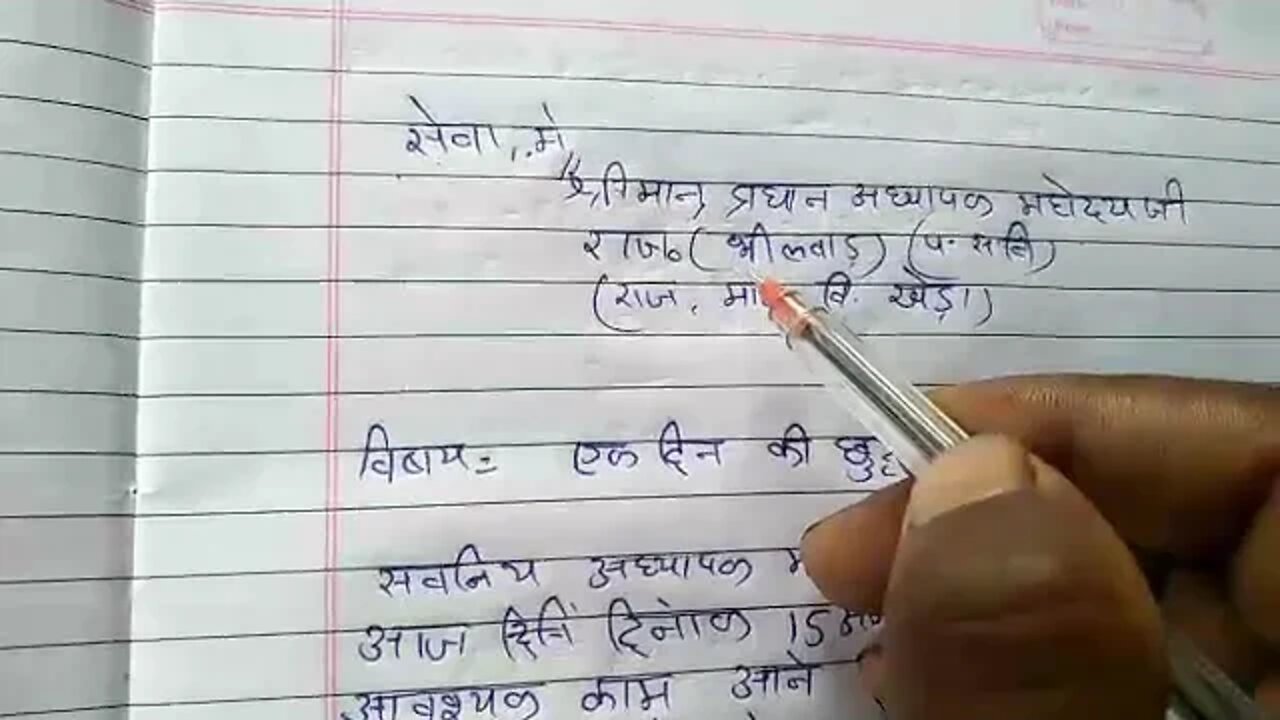 सेवा, मे
श्रीमान प्रधान अध्यापक महोदयजी
राज० (भीलवाड़) (प. सवि)
(राज, मा वि. खेड़ा)
विषाय = एक दिन की छु
सवनिय अध्यापक म
आज दिनांक 15
आवश्यक काम आने